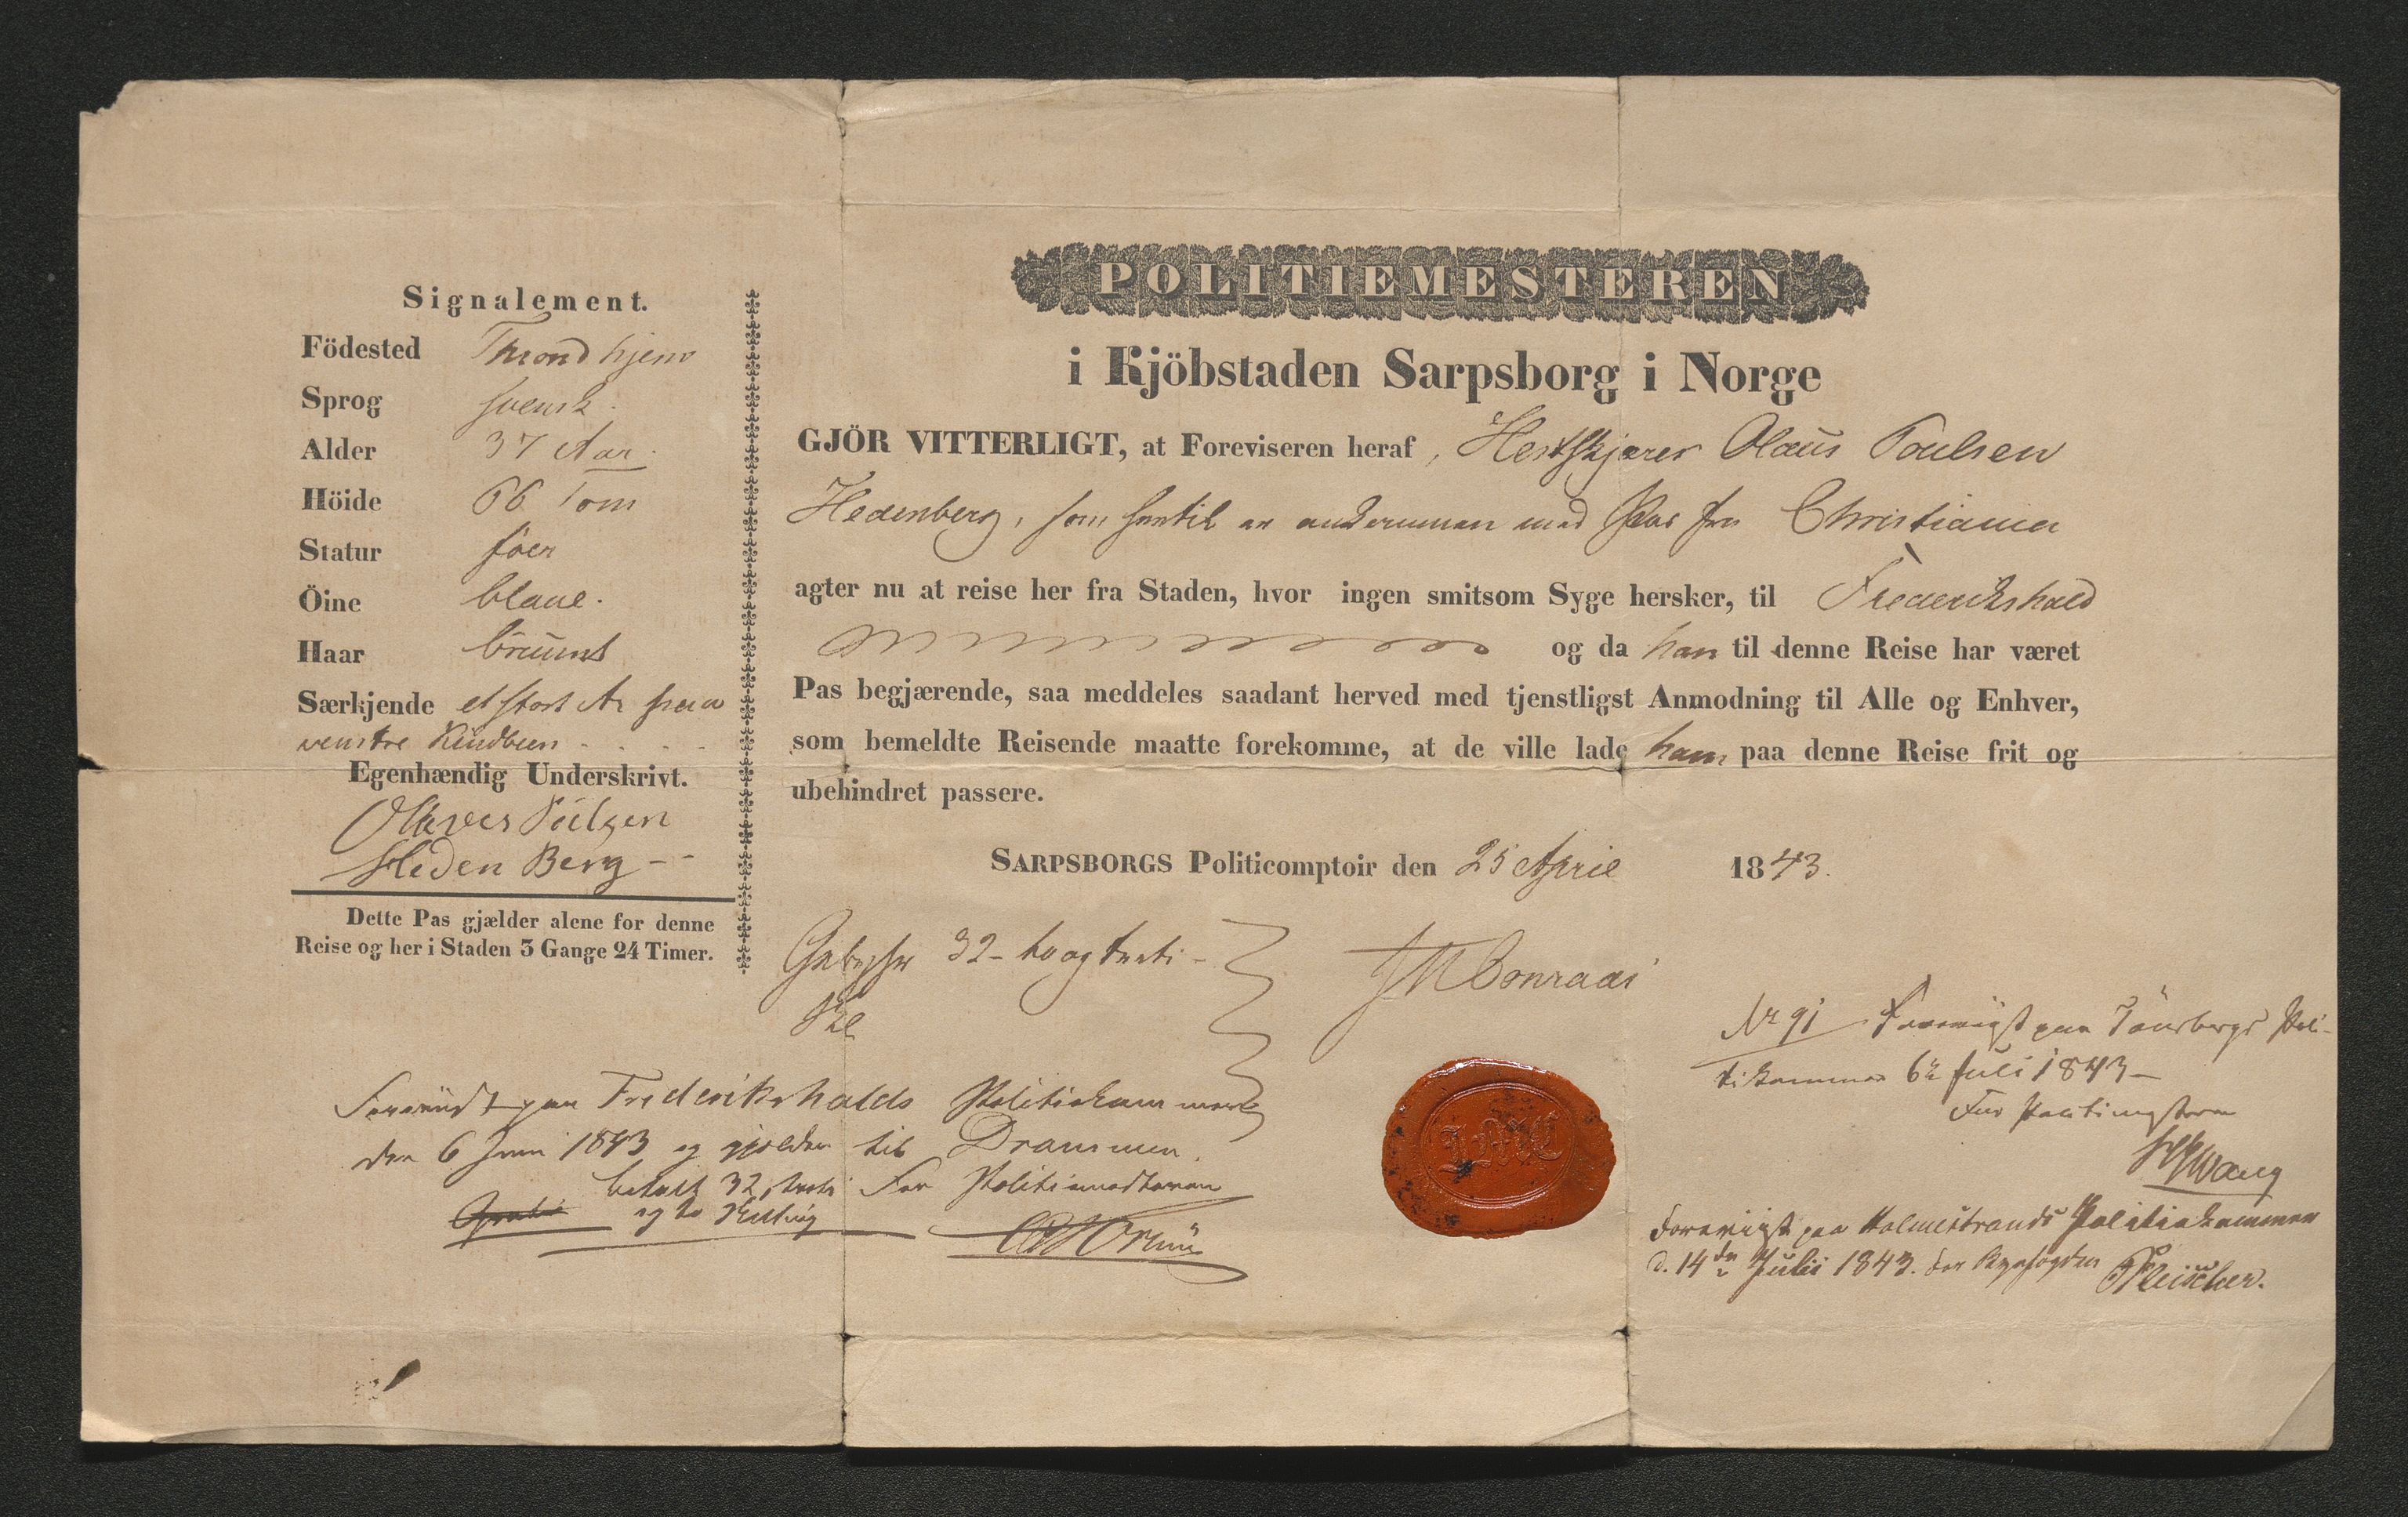 Signalement.
Födested Throndhjem
Sprog svensk.
Alder 37 Aar.
Höide 66 Tom
Statur föer
Öine blaae.
Haar bruunt
Særkjende et stort Ar paa
venstre Kindbeen - - - -
Egenhændig Underskrivt.
Olaves Pülsen
Heden Berg - -
Dette Pas gjælder alene for denne
Reise og her i Staden 3 Gange 24 Timer.
POLITIEMESTEREN
i Kjöbstaden Sarpsborg i Norge
GJÖR VITTERLIGT, at Foreviseren heraf, Hestskjærer Olaus Poulsen
Hedenberg, som hertil er ankommen med Pas fra Christiania
agter nu at reise her fra Staden, hvor ingen smitsom Syge hersker, til Frederikshald
og da han til denne Reise har været
Pas begjærende, saa meddeles saadant herved med tjenstligst Anmodning til Alle og Enhver,
som bemeldte Reisende maatte forekomme, at de ville lade ham paa denne Reise frit og
ubehindret passere.
SARPSBORGS Politicomptoir den 25 April 1843.
Gebyhr 32 - to og treti -
Sk
JM Conradi
Foreviist paa Frederikshalds Politiekammer
den 6 Juni 1843 og gjelder til Drammen.
betalt 32, treti For Politiemesteren
Gratis og to Skilling
Nr 91 Foreviist paa Tönsbergs Poli-
tikammer 6te Juli 1843 -
For Politimesteren
Wang
Foreviist paa Holmestrands Politiekammer
d. 14de Julii 1843. For Byefogden
Fleischer.